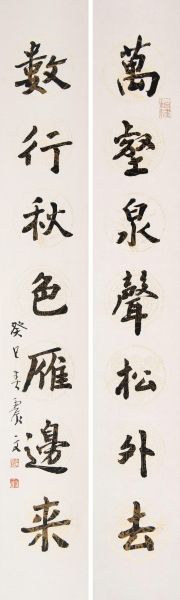 萬壑泉聲松外去
數行秋色雁邊来
癸巳春震文